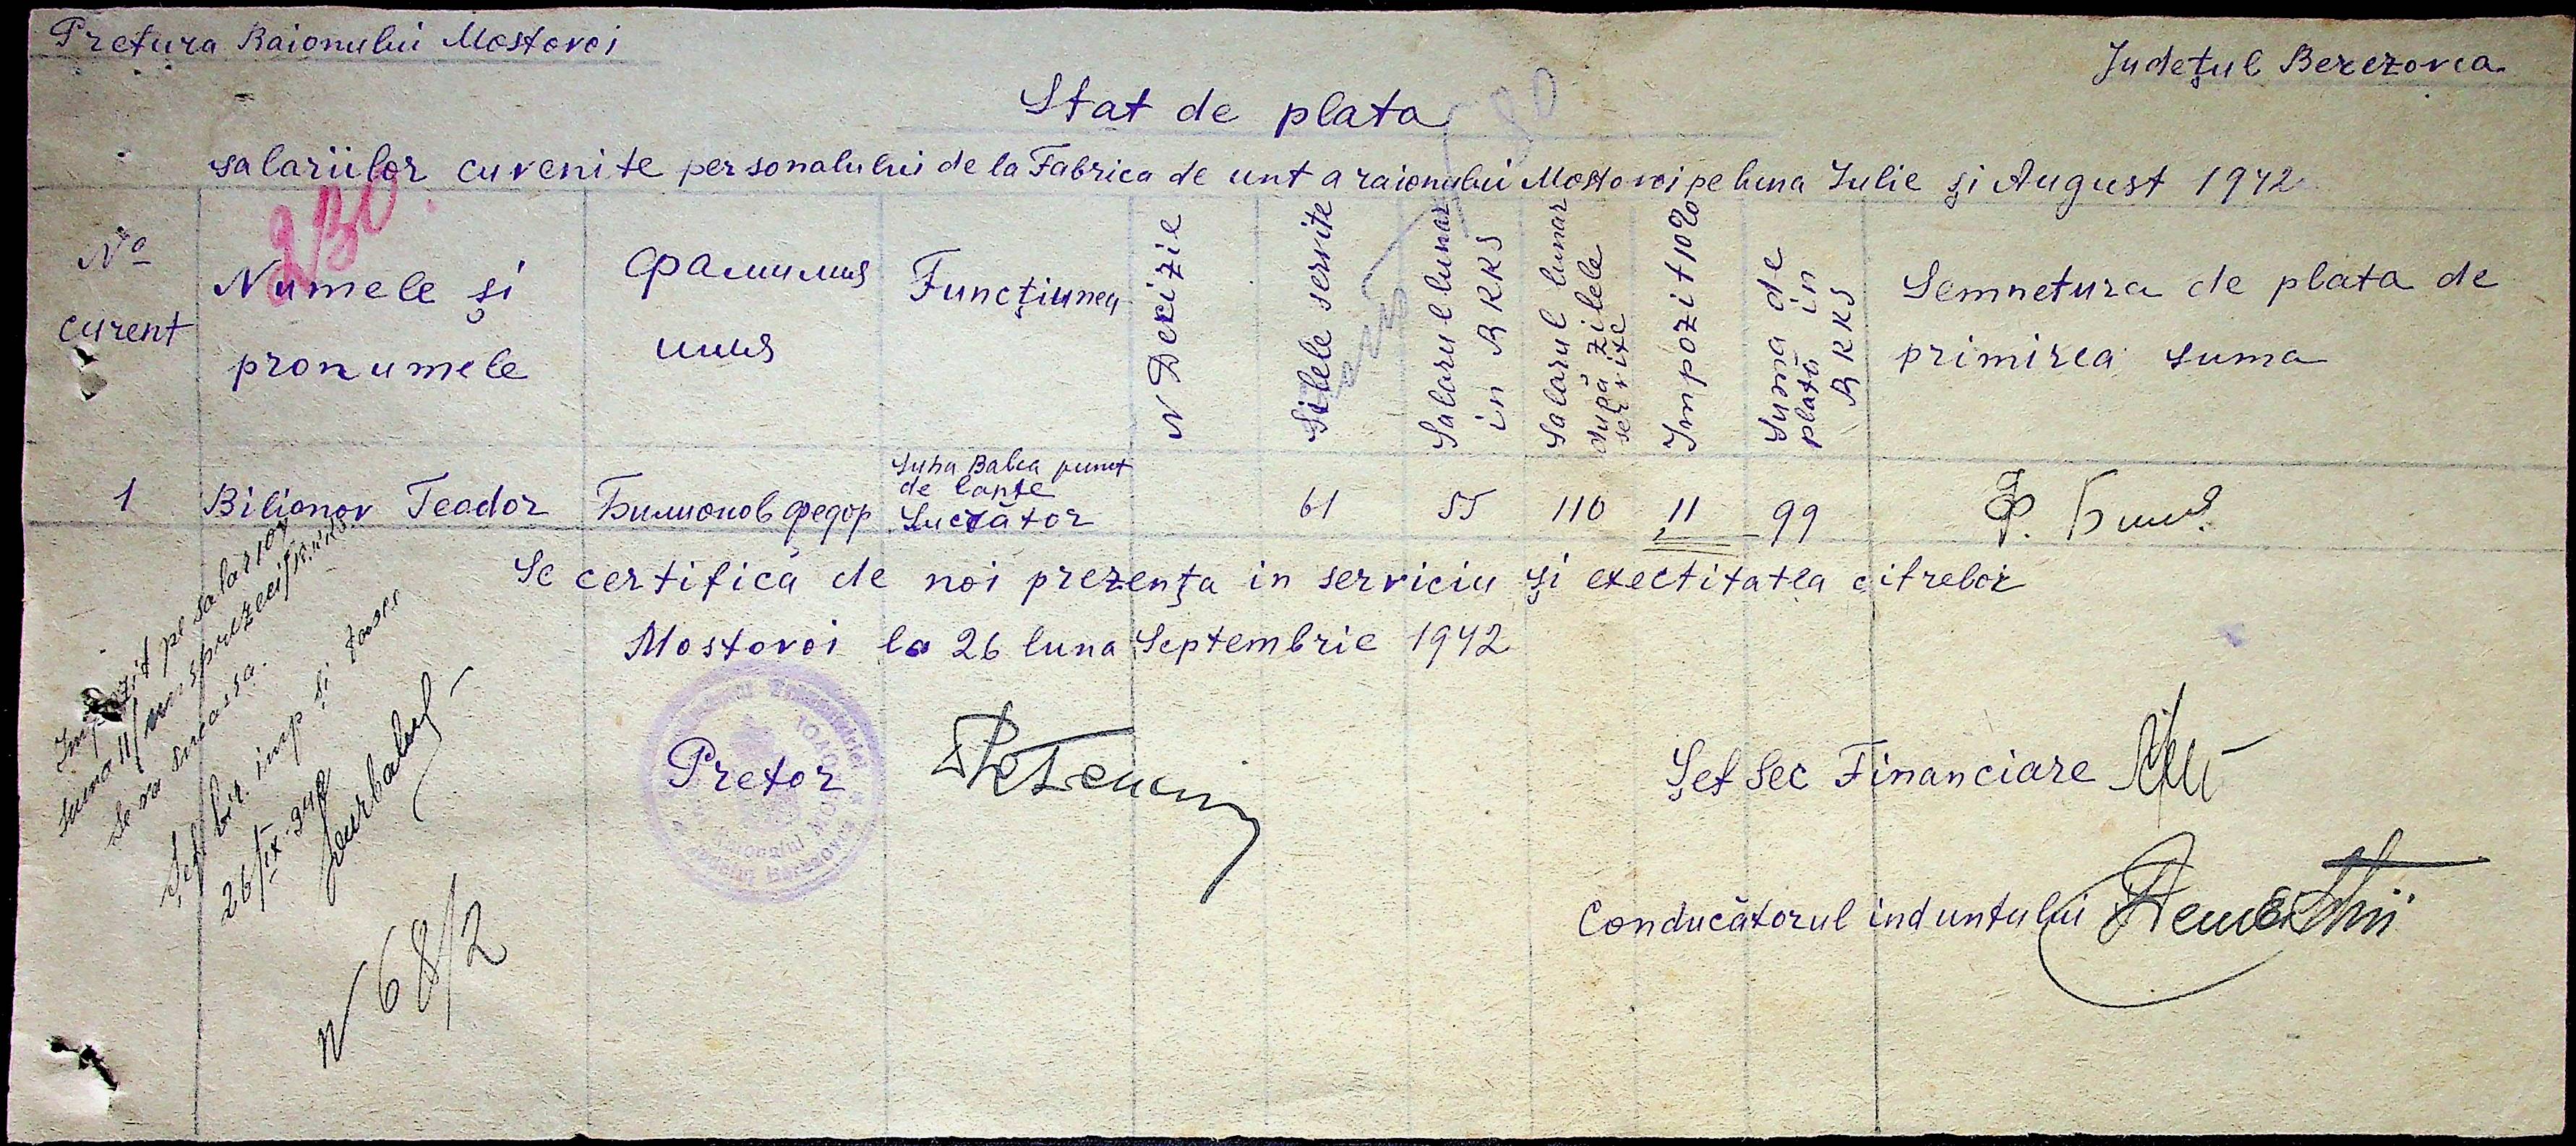 Pretura Raionului Mostovoi
Județul Berezovca
Stat de plata
salariilor cuvenite personalului de la Fabrica de unt a raionului Mostovoi pe luna Iulie și August 1942
230
Nº curent
Numele și pronumele
Фамилия имя
Funcțiunea
N Decizie
Silele servite
Salarul lunar in RKKS
Salarul lunar după zilele servite
Impozit 10%
Suma de plată in RKKS
Semnetura de plata de primirea suma
1 Bilionov Teodor Билионов Федор Suha Balca punct de lapte Lucrător 61 55 110 11 99 Ф. Били
Se certifică de noi prezența in serviciu și exectitatea cifrelor
Mostovoi la 26 luna Septembrie 1942
Pretor
Șef Sec Financiare
Conducătorul induntului
Impozit pe salarior
suma 11/un sprezeci/RKKS
Se va incassa.
Șef bir. imp și taxer
26/IX-942
N 68/2